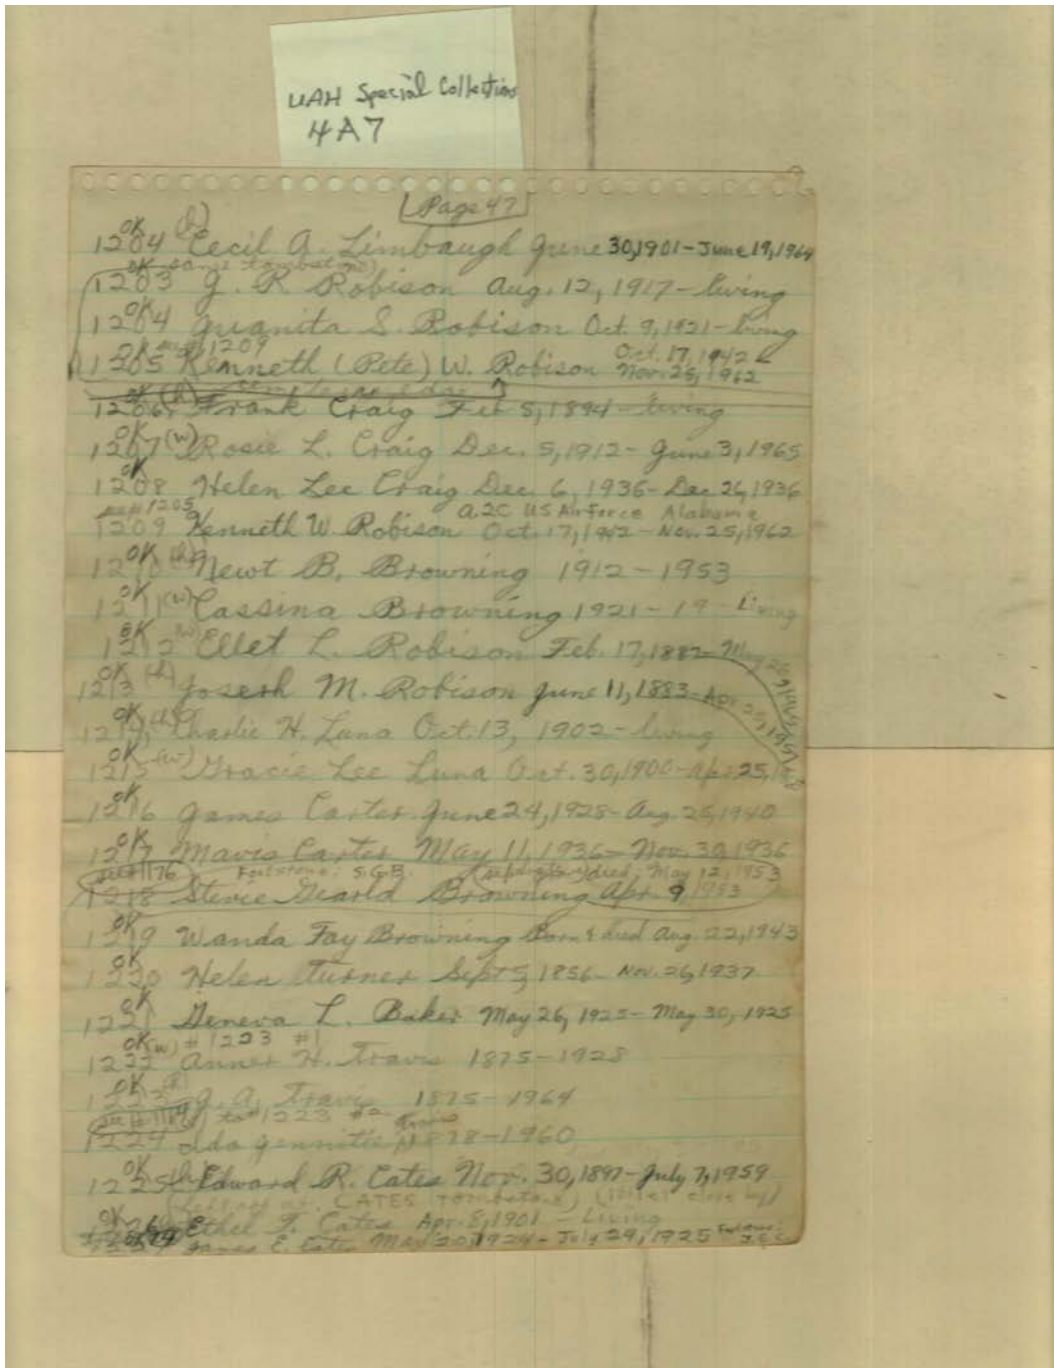 UAH Special Collections
4A7
Page 47
OK (h)
1204 Cecil A. Limbaugh June 30, 1901 - June 19, 1964
OK same tombstone)
1203 J. R. Robison Aug. 12, 1917 - living
OK
1204 Juanita S. Robison Oct. 9, 1921 - living
OK see # 1209 Oct. 17, 1942 &
1205 Kenneth (Pete) W. Robison Nov. 25, 1962
OK (h)
1206 Frank Craig Feb 5, 1894 - living
OK
1207 (w) Rosie L. Craig Dec. 5, 1912 - June 3, 1965
OK
1208 Helen Lee Craig Dec. 6, 1936 - Dec 26, 1936
see # 1205 A2C US Airforce Alabama
1209 Kenneth W. Robison Oct. 17, 1942 - Nov. 25, 1962
OK (h)
1210 Newt B. Browning 1912 - 1953
OK
1211 (w) Cassina Browning 1921 - 19 - Living
OK (w)
1212 Ellet L. Robison Feb. 17, 1882 - May
OK (h)
1213 Joseph M. Robison June 11, 1883 - Apr 25, 19
OK (h)
1214 Charlie H. Luna Oct. 13, 1902 - living
OK (w)
1215 Gracie Lee Luna Oct. 30, 1900 - Apr. 25, 19
OK
1216 James Carter June 24, 1928 - Aug. 25, 1940
OK
1217 Mavis Carter May 11, 1936 - Nov. 30, 1936
see # 1176 Footstone: S.G.B. died, May 12, 1953
1218 Stevie Gearld Browning Apr. 9, 1953
OK
1219 Wanda Fay Browning Born & died Aug. 22, 1943
OK
1220 Helen Turner Sept 5, 1856 - Nov. 26, 1937
OK
1221 Geneva L. Baker May 26, 1925 - May 30, 1925
OK (w) # 1223 #1
1222 Anner H. Travis 1875 - 1928
OK (h)
1223 J. A. Travis 1875 - 1964
to # 1223 #2 Travis
1224 Ida Jennitie 1878 - 1960
OK (h)
1225 Edward R. Cates Nov. 30, 1897 - July 7, 1959
CATES tombstone)
OK
1226 Ethel F. Cates Apr. 8, 1901 - Living
James E. Cates May 20, 1924 - July 29, 1925